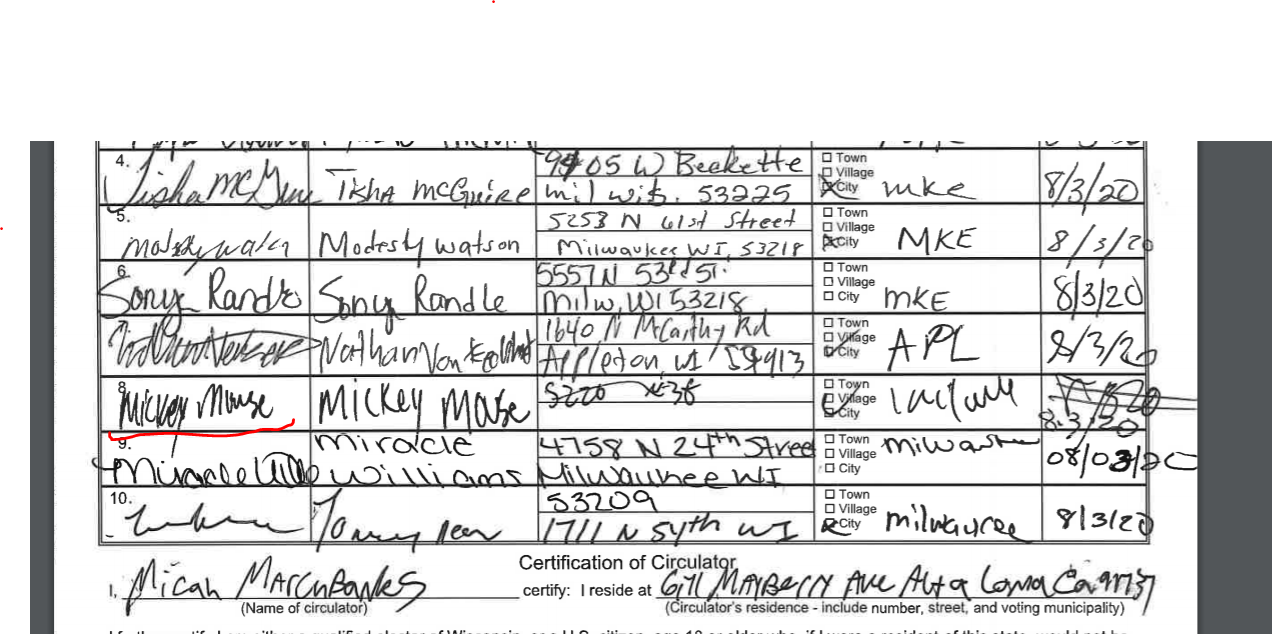 4. Tisha McGuire TISHA McGUIRE 9405 W Beckette ☐ Town
☐ Village
mil wis. 53225 ☒ City mke 8/3/20
5. 5253 N 61st Street ☐ Town
☐ Village
Modesty Watson Milwaukee WI, 53218 ☒ City MKE 8/3/20
6. 5557 N 53rd St. ☐ Town
☐ Village
Sonya Randle Sonya Randle Milw, WI 53218 ☐ City MKE 8/3/20
1640 N McCarthy Rd ☐ Town
☐ Village
Nathan Appleton, WI 54913 ☒ City APL 8/3/20
8. ☐ Town
☐ Village
Mickey Mouse Mickey Mouse 5220 ☐ City 8.3/20
9. Miracle 4758 N 24th Street ☐ Town
☐ Village
Miracle Williams Milwaukee WI ☐ City 08/03/20
10. 53209 ☐ Town
☐ Village
1711 N 54th WI ☒ City milwaukee 8/3/20
Certification of Circulator
I, Micah Marchbanks certify: I reside at Mayberry Ave Alta Loma Ca 91737
(Name of circulator) (Circulator's residence - include number, street, and voting municipality)